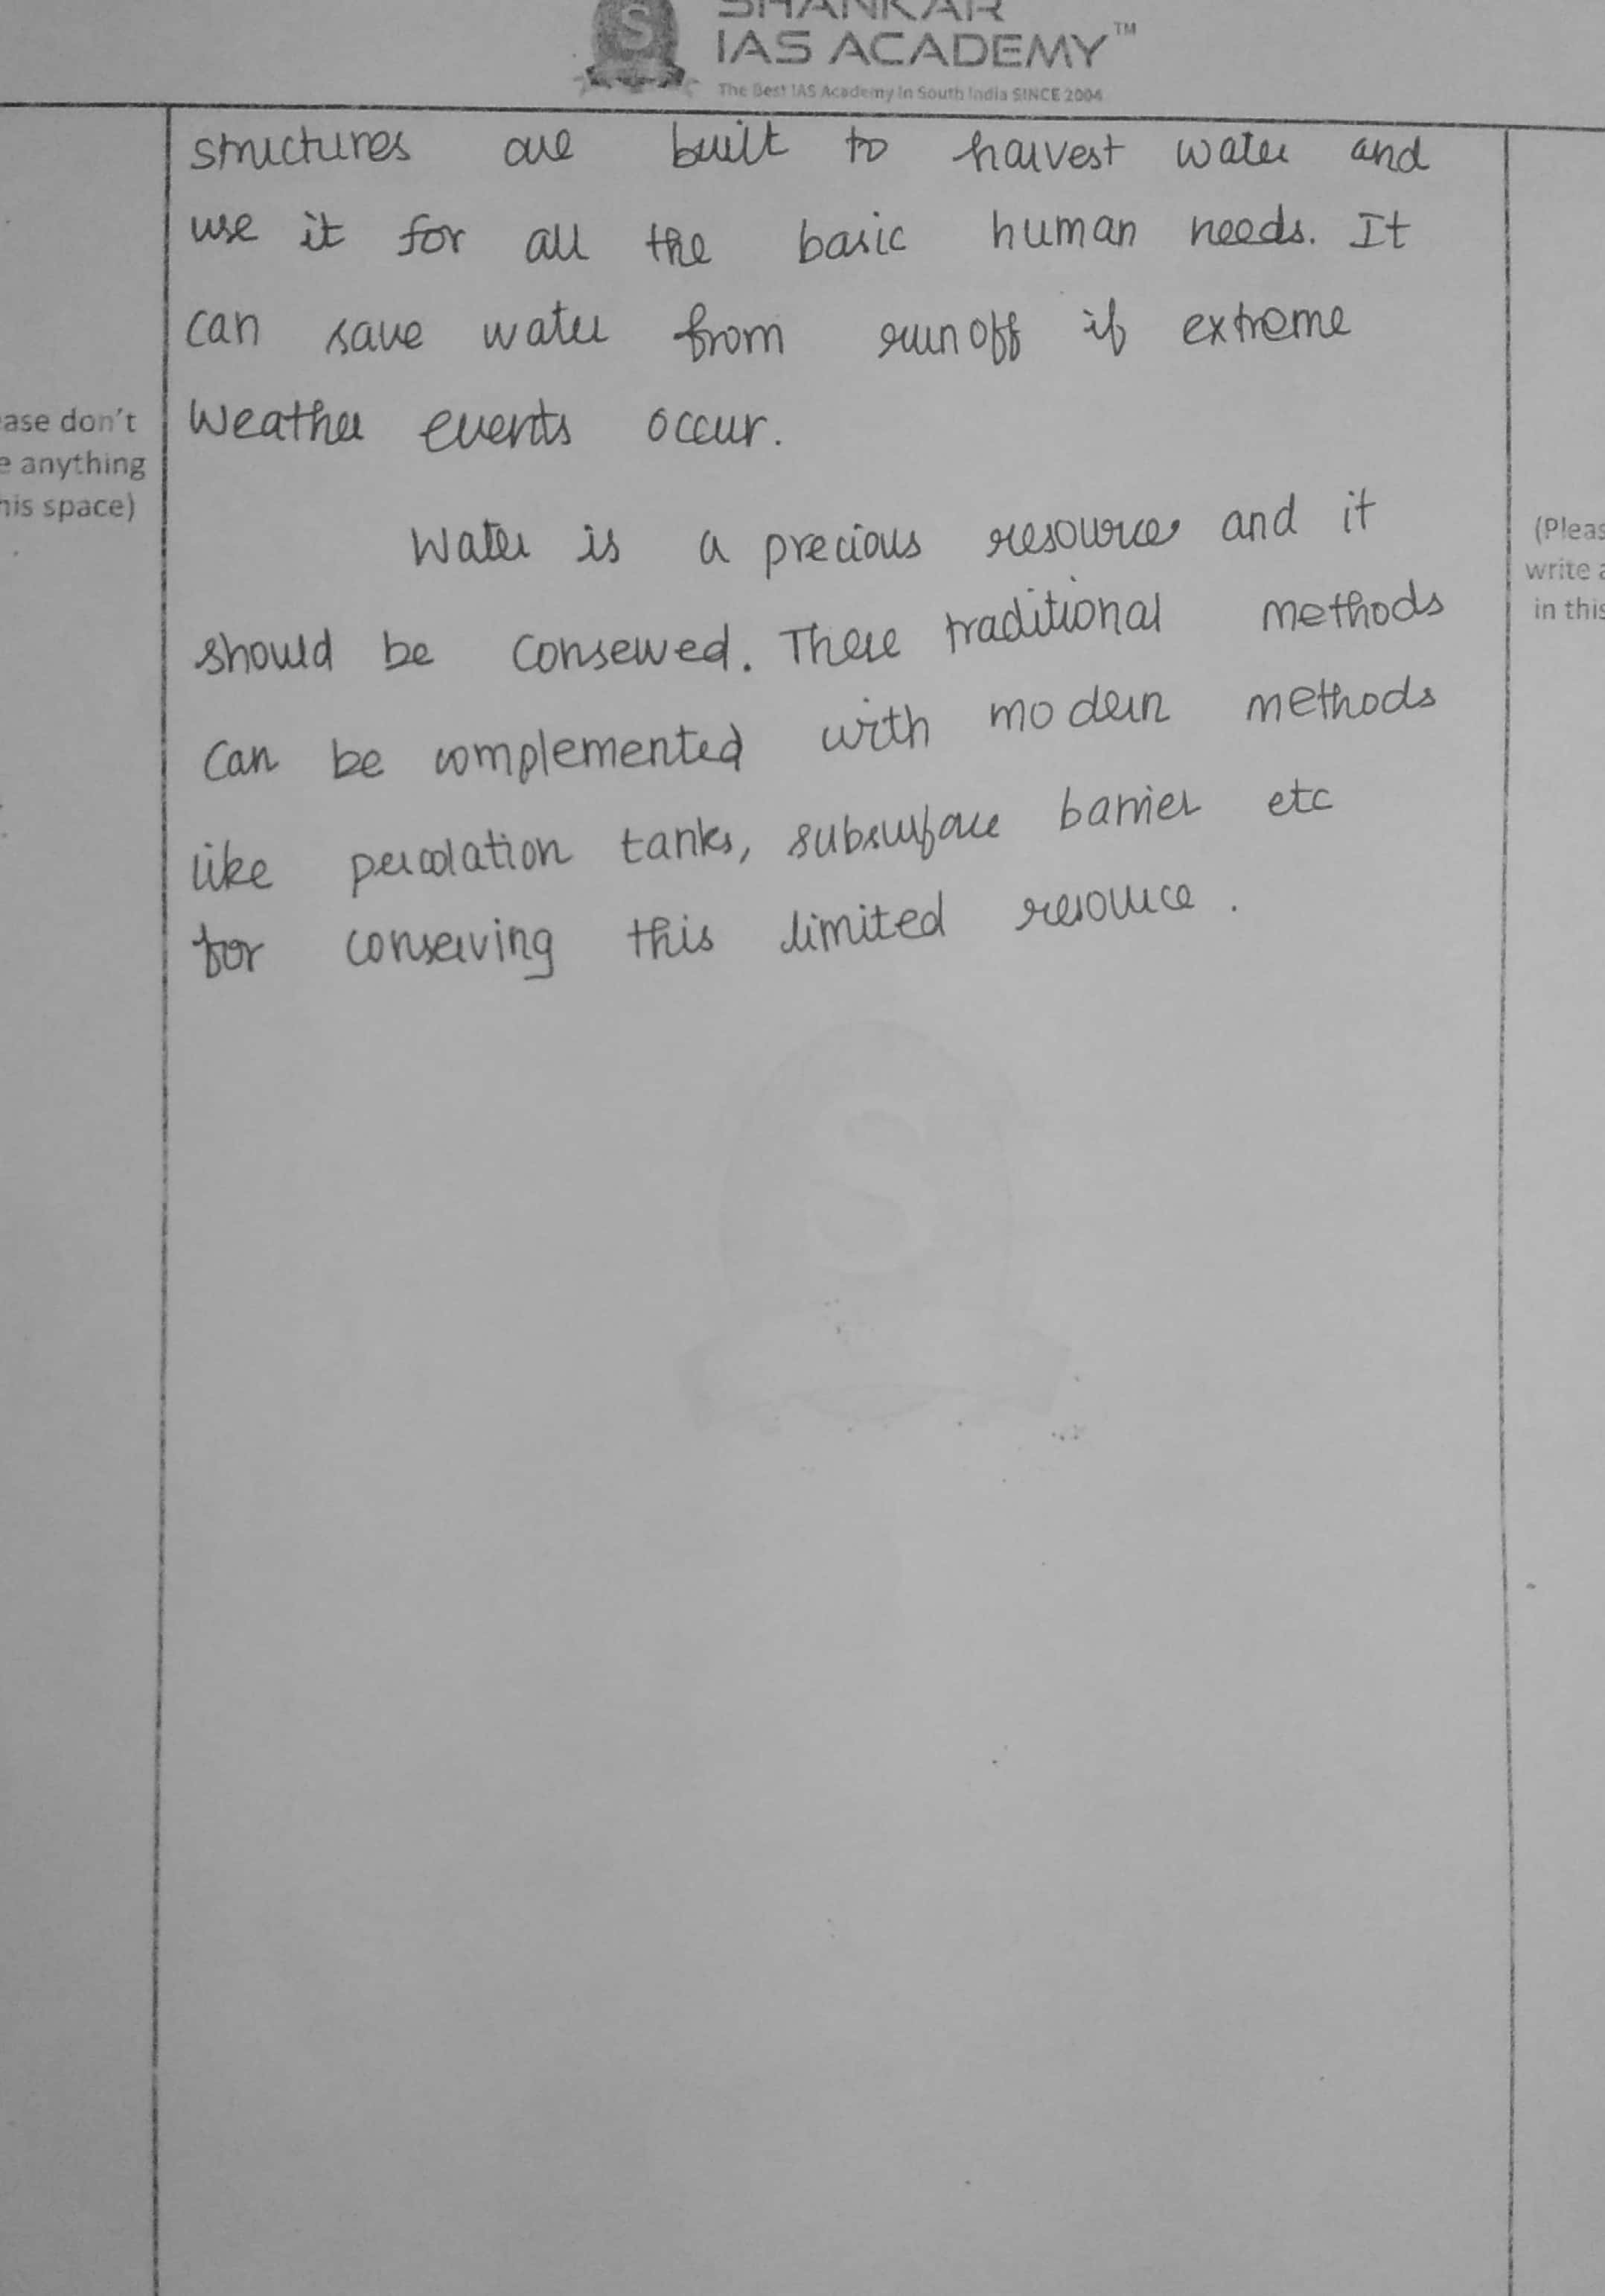 SHANKAR
IAS ACADEMY™
The Best IAS Academy In South India SINCE 2004
structures are built to harvest water and
use it for all the basic human needs. It
can save water from runoff if extreme
weather events occur.
Water is a precious resource and it
should be conserved. These traditional methods
can be complemented with modern methods
like percolation tanks, subsurface barrier etc
for conserving this limited resource.
ase don't
e anything
his space)
(Pleas
write a
in this